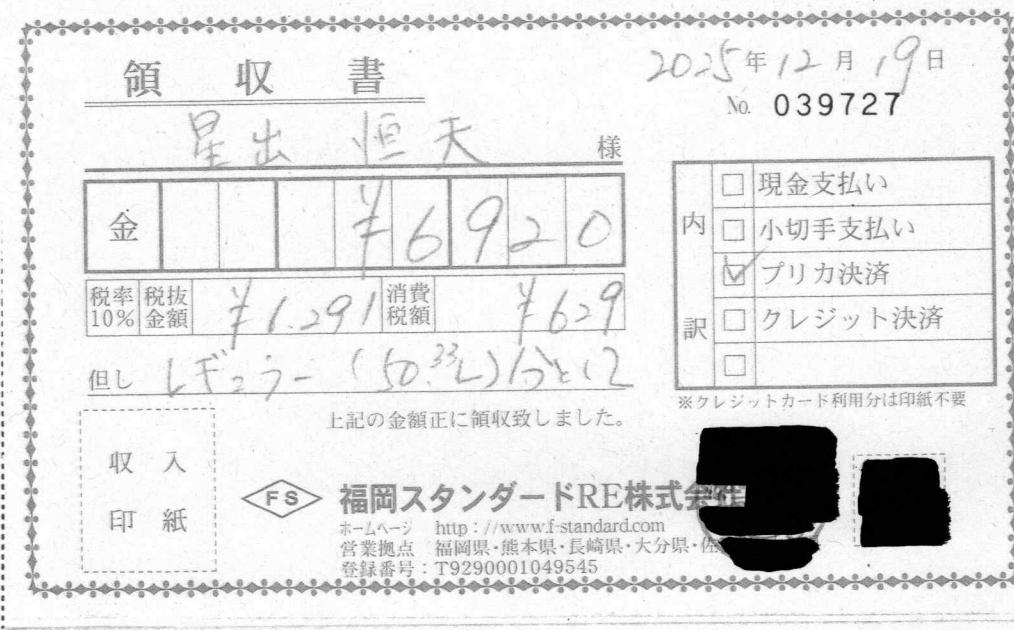 領収書
2025年12月19日
No. 039727
星出 恒天 様
金 ¥6920
税率10% 税抜金額 ¥6.291 消費税額 ¥629
但し レギュラー (50.33L)分として
上記の金額正に領収致しました。
内訳
現金支払い
小切手支払い
プリカ決済
クレジット決済
※クレジットカード利用分は印紙不要
収入
印紙
FS 福岡スタンダードRE株式会社
ホームページ http://www.f-standard.com
営業拠点 福岡県・熊本県・長崎県・大分県・佐
登録番号:T9290001049545